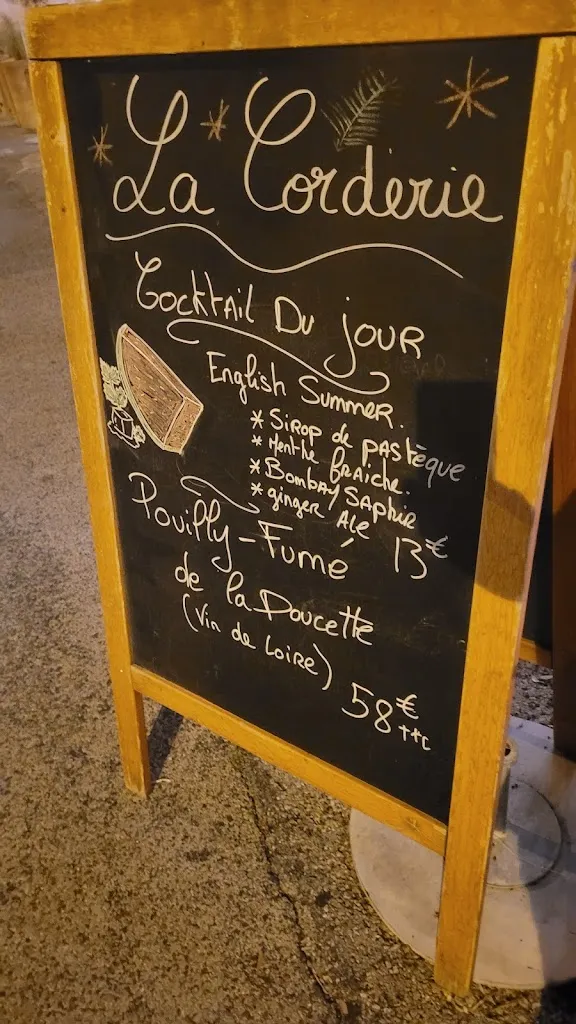 La Corderie
Cocktail Du jour
English Summer.
* Sirop de pastèque
* Menthe fraiche.
* Bombay Saphir
* ginger Ale
13€
Pouilly-Fumé
de la Doucette
(Vin de Loire)
58€
TTC